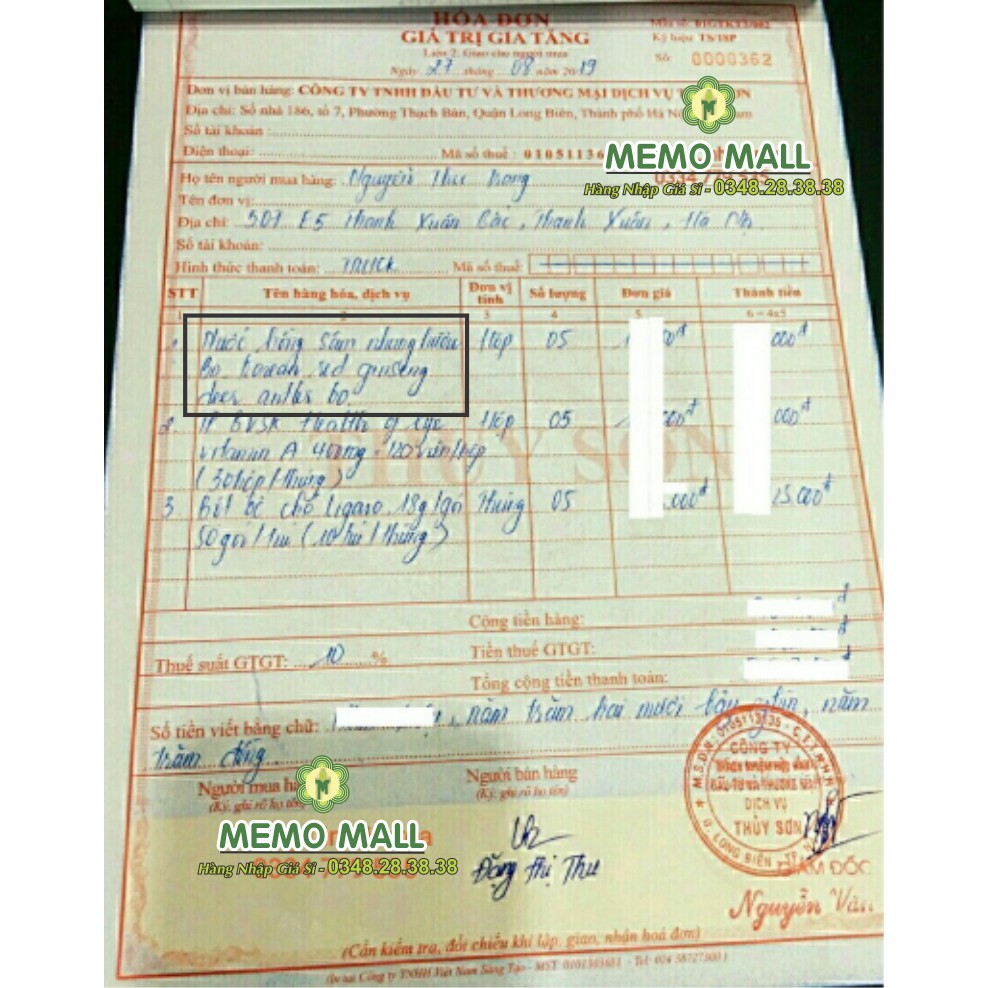 HÓA ĐƠN
GIÁ TRỊ GIA TĂNG
Liên 2: Giao cho người mua
Ngày 27 tháng 08 năm 2019
Mẫu số: 01GTKT3/002
Ký hiệu: TS/18P
Số: 0000362
Đơn vị bán hàng: CÔNG TY TNHH ĐẦU TƯ VÀ THƯƠNG MẠI DỊCH VỤ
Địa chỉ: Số nhà 186, tổ 7, Phường Thạch Bàn, Quận Long Biên, Thành phố Hà
Số tài khoản:
Điện thoại: Mã số thuế: 01051136
MEMO MALL
Hàng Nhập Giá Sỉ - 0348.28.38.38
Họ tên người mua hàng: Nguyễn Thu
Tên đơn vị:
Địa chỉ: 507 E5 Thanh Xuân Bắc, Thanh Xuân, Hà Nội.
Số tài khoản:
Hình thức thanh toán: TM/CK Mã số thuế:
STT Tên hàng hóa, dịch vụ Đơn vị tính Số lượng Đơn giá Thành tiền
1 3 4 5 6 = 4x5
1. Nước hồng sâm nhung hươu Hộp 05 000đ
Bo Korean red ginseng
deer antler bo
2. TP BVSK Health of eye Hộp 05 000đ 000đ
vitamin A 400mg - 120 viên/hộp
(30 hộp/thùng)
3. Bột bé chó Ligaro 18g/gói Thùng 05 .000đ 25.000đ
50 gói/túi (10 túi/thùng)
THỦY SƠN
Cộng tiền hàng: đ
Thuế suất GTGT: 10 % Tiền thuế GTGT: đ
Tổng cộng tiền thanh toán: đ
Số tiền viết bằng chữ: , năm trăm hai mươi bảy nghìn, năm
trăm đồng
Người mua hà
(Ký, ghi rõ họ tên)
Người bán hàng
(Ký, ghi rõ họ tên)
MEMO MALL
Hàng Nhập Giá Sỉ - 0348.28.38.38
Đặng Thị Thu
M.S.D.N: 0105113635 - C.T.T.N.H.H
CÔNG TY
TRÁCH NHIỆM HỮU HẠN
ĐẦU TƯ VÀ THƯƠNG MẠI
DỊCH VỤ
THỦY SƠN
Q. LONG BIÊN - TP
GIÁM ĐỐC
Nguyễn Văn
(Cần kiểm tra, đối chiếu khi lập, giao, nhận hoá đơn)
(In tại Công ty TNHH Việt Nam Sáng Tạo - MST: 0101303681 - Tel: 024 38727300)